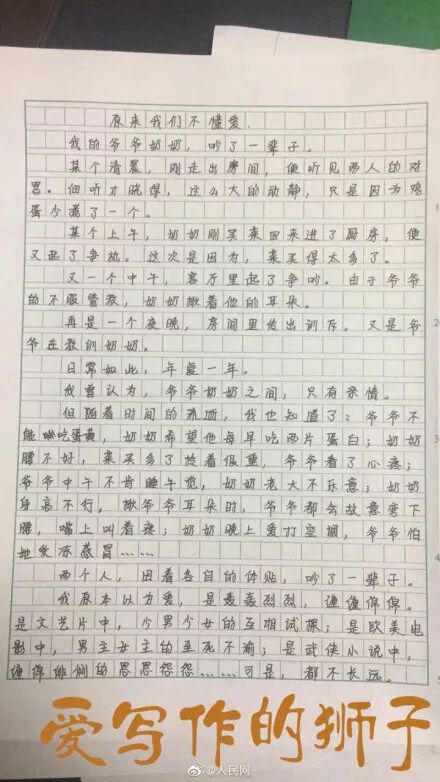 原来我们不懂爱.
我的爷爷奶奶，吵了一辈子。
某个清晨，刚走出房间，便听见两人的对
骂。细听方晓得，这么大的动静，只是因为鸡
蛋少煮了一个。
某个上午，奶奶刚买菜回来进了厨房，便
又起了争执。这次是因为，菜买得太多了。
又一个中午，客厅里起了争吵。由于爷爷
的不服管教，奶奶揪着他的耳朵。
再是一个夜晚，房间里传出训斥。又是爷
爷在教训奶奶。
日常如此，年复一年。
我曾认为，爷爷奶奶之间，只有亲情。
但随着时间的流逝，我也知道了：爷爷不
能吃蛋黄，奶奶希望他每早吃两片蛋白；奶奶
腰不好，菜买多了拎着很重，爷爷看了心疼；
爷爷中午不肯睡午觉，奶奶老大不乐意；奶奶
身高不行，揪爷爷耳朵时，爷爷都会故意弯下
腰，嘴上叫着疼；奶奶晚上爱打空调，爷爷怕
她受冻感冒……
两个人，因着各自的体贴，吵了一辈子。
我原本以为爱，是轰轰烈烈，缠缠绵绵。
是文艺片中，少男少女的互相试探；是欧美电
影中，男主女主的至死不渝；是武侠小说中，
缠绵悱恻的恩恩怨怨……可是，都不长远。
爱写作的狮子
@人民网